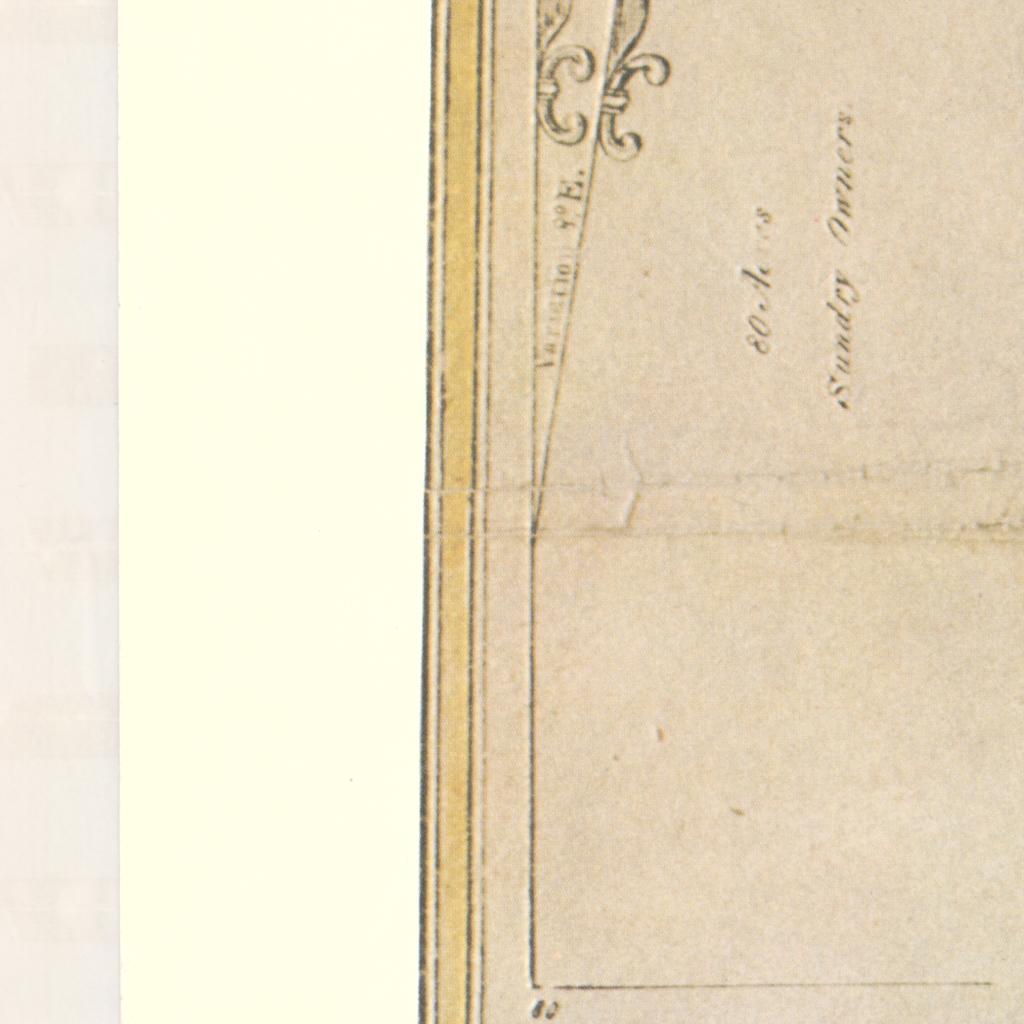 Variation 9° E.
80 Acres
Sundry Owners.
80